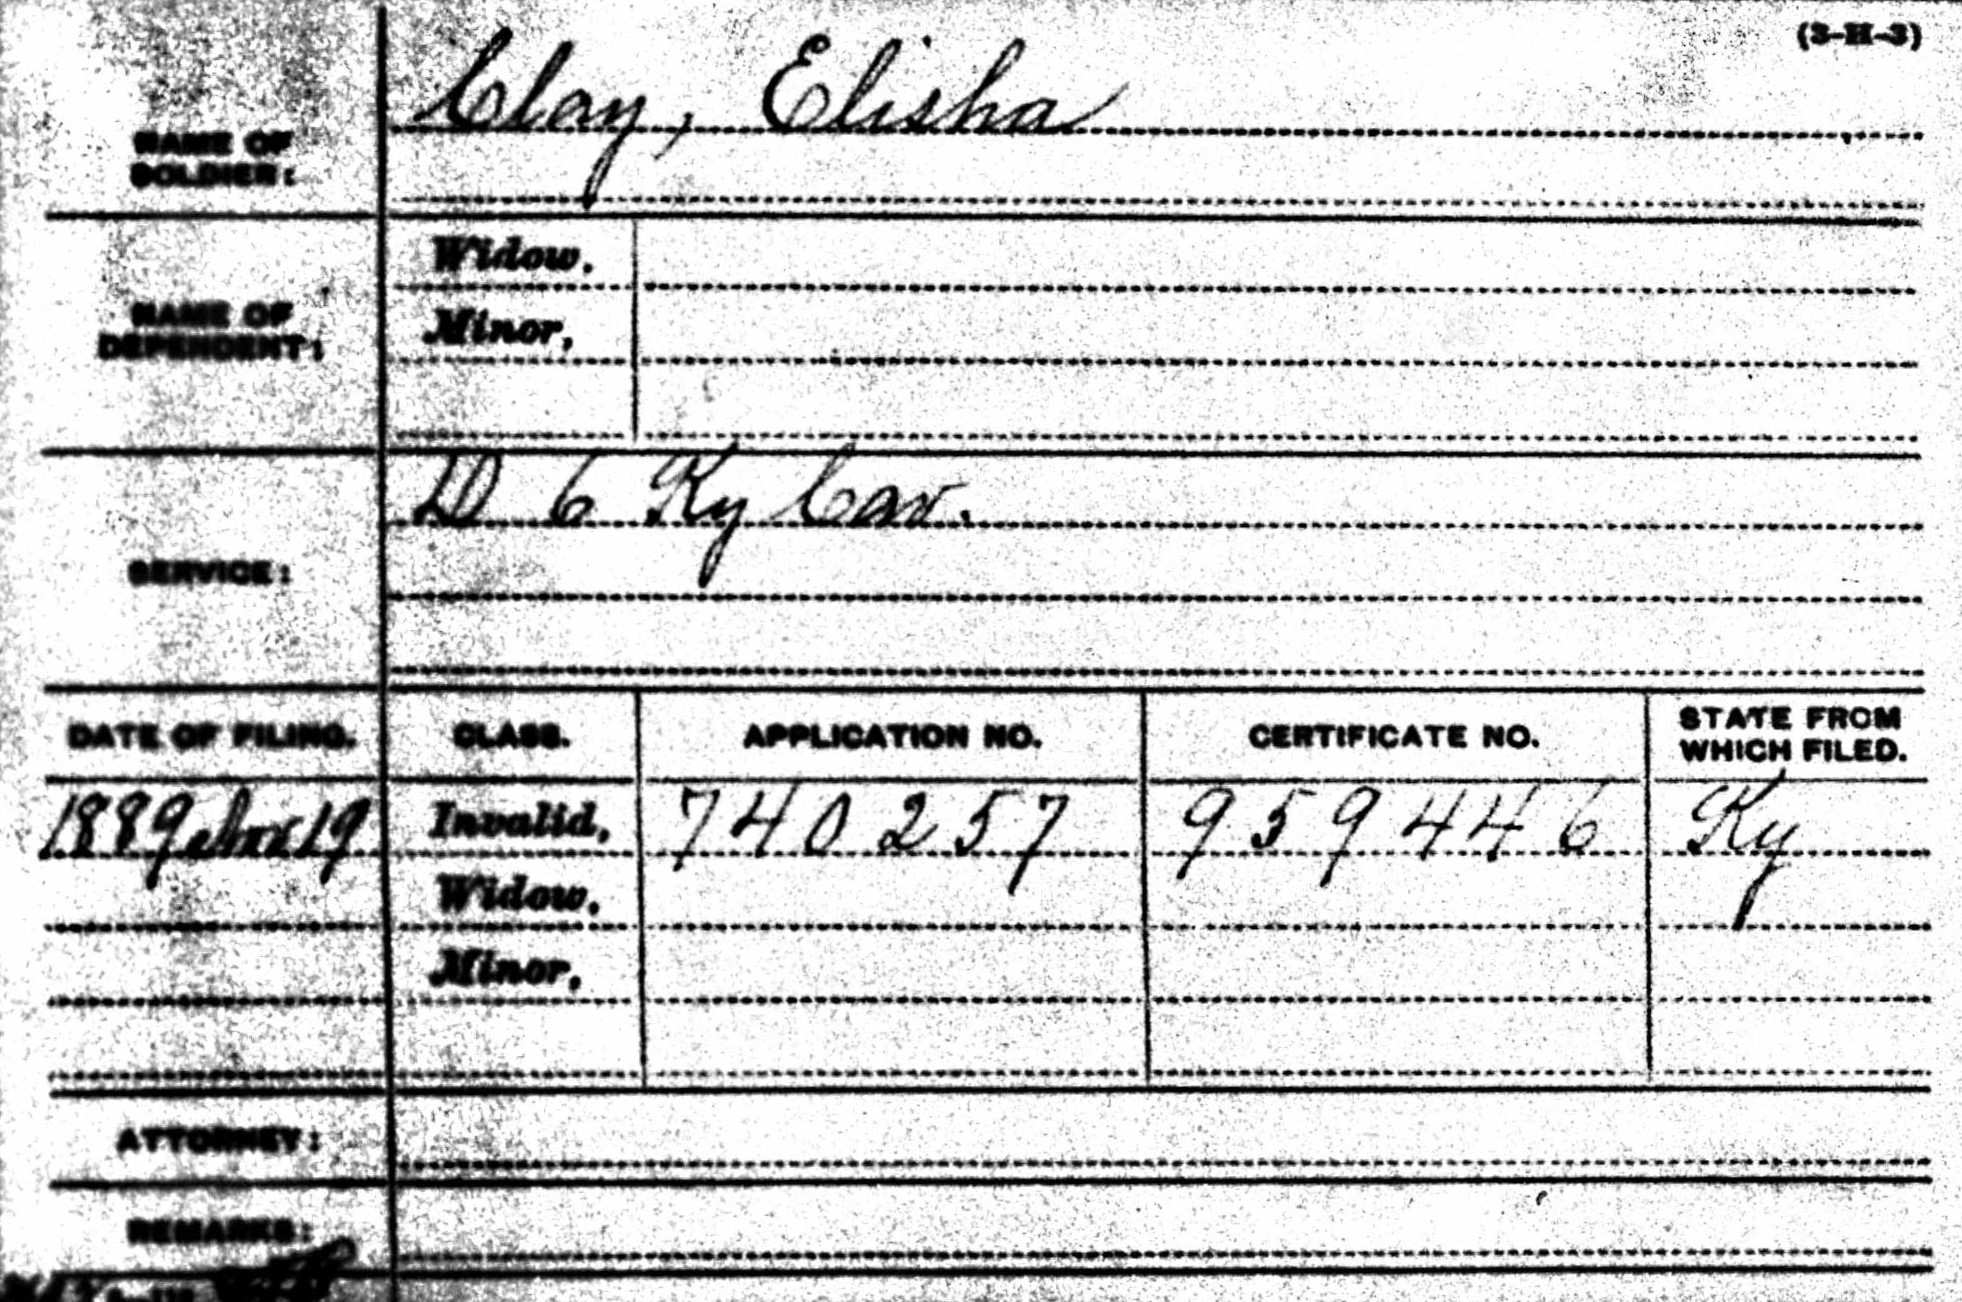 (3-H-3)
Clay, Elisha
NAME OF
SOLDIER:
Widow.
Minor,
NAME OF
DEPENDENT:
D 6 Ky Cav.
SERVICE:
DATE OF FILING. CLASS. APPLICATION NO. CERTIFICATE NO. STATE FROM WHICH FILED.
1889 19 Invalid, 740257 959446 Ky
Widow,
Minor,
ATTORNEY:
REMARKS: